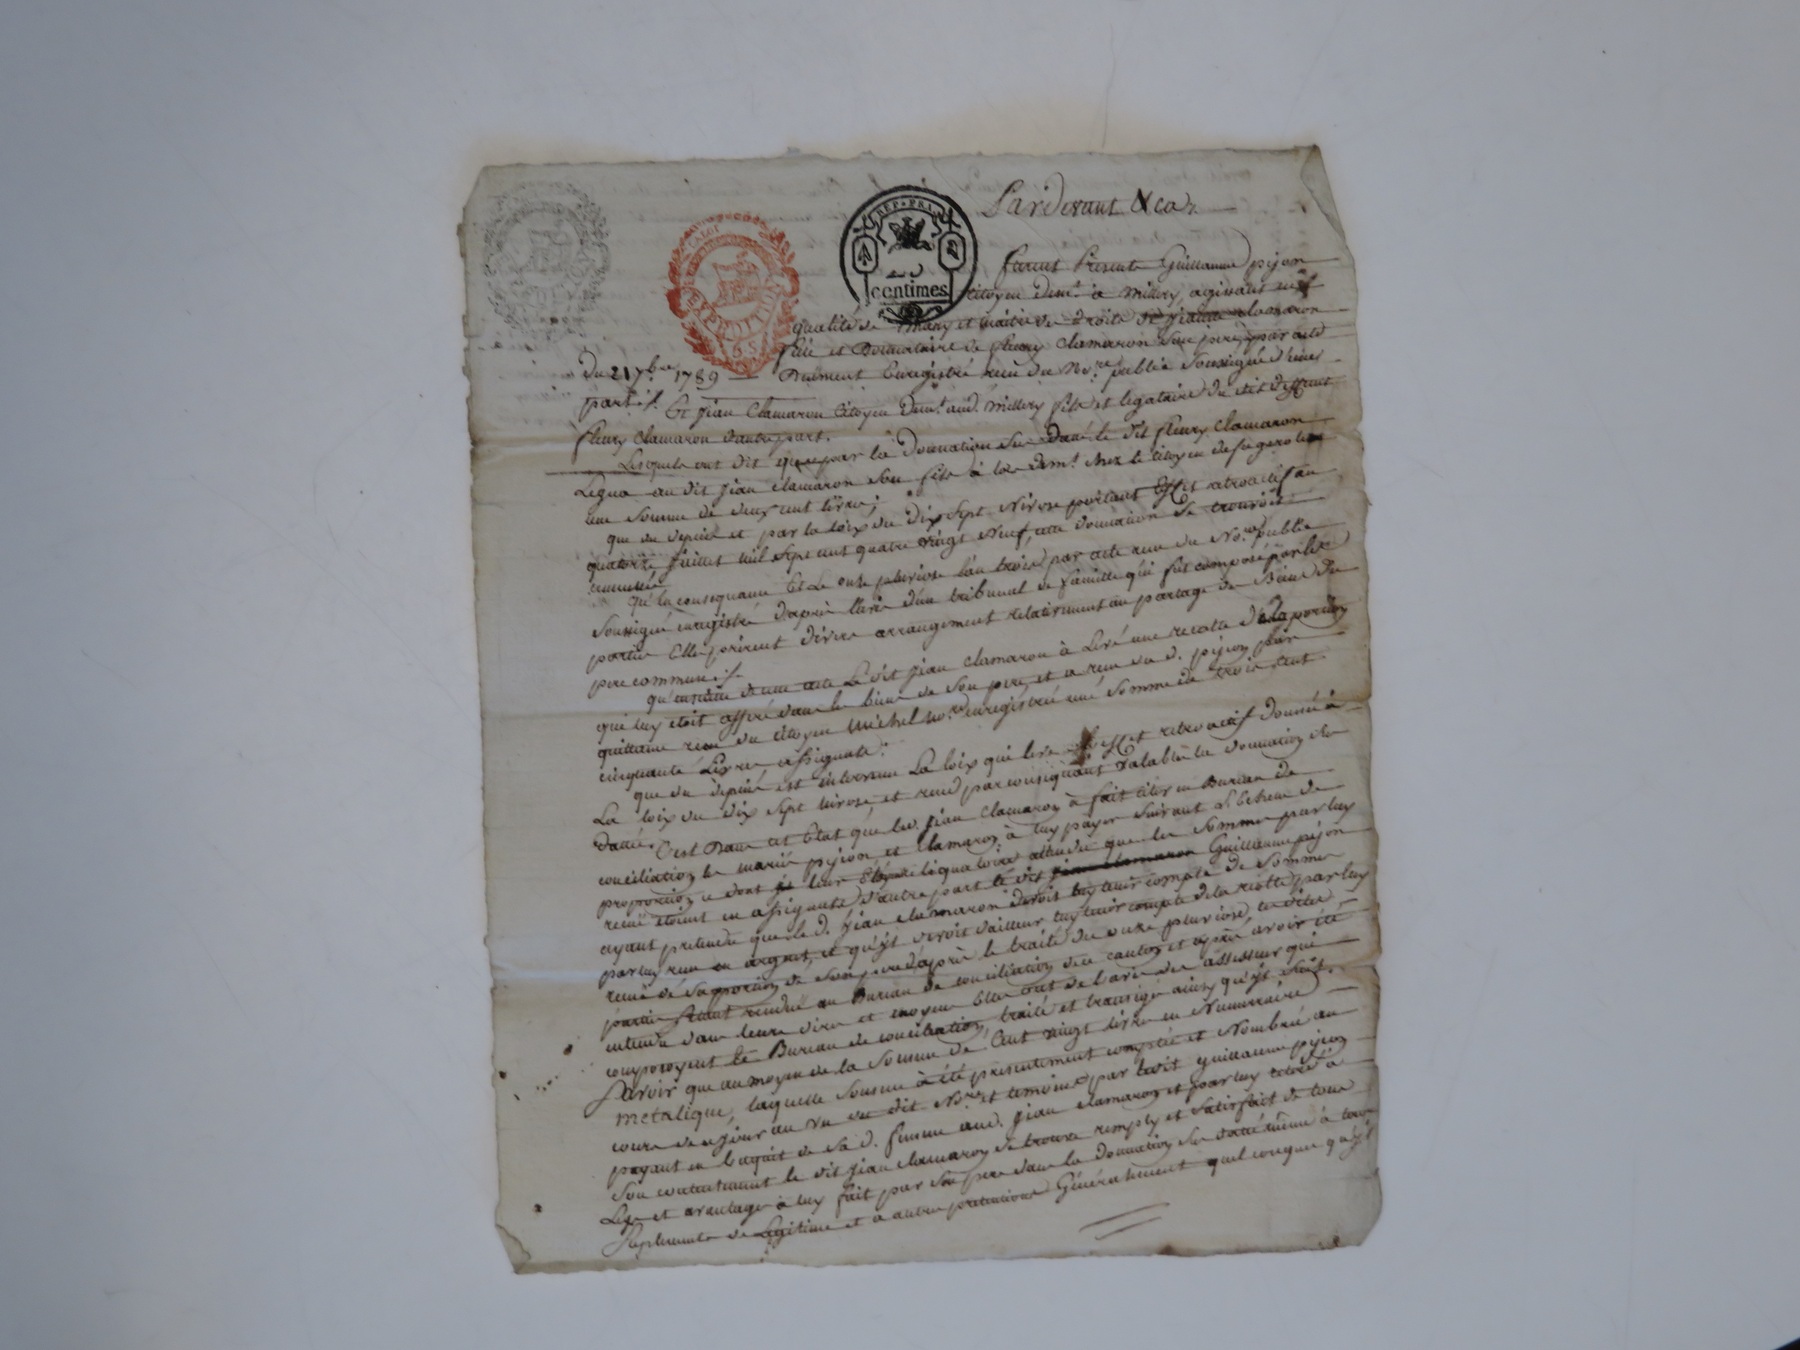 Pardevant &ca
REP. FRA.
centimes
LA LOI
EXPEDITION
65
furent Présents Guillaume pijon
citoyen demt. à Millery, agissant en
qualité de mary et maitre des droits de jeanne clamaron
fille et Donnataire de fleury clamaron son pere, par acte
du 21 7bre 1789 — Dument Enregistré reçu du Nore. public Soussigné d'une
part ;
Et jean Clamaron Citoyen demt. aud. Millery fils et legataire du dit deffunt
fleury Clamaron d'autre part.
Lesquels ont dit que par la Donnation sus dattée le dit fleury clamaron
Legua au dit jean clamaron son fils à loe demt. chez le citoyen
une somme de deux cent livres ;
que du depuis et par la loix du dix sept Nivose portant Effet retroactif au
quatorze juillet mil sept cent quatre vingt neuf, cette donnation se trouvoit
annullée
Qu'en consequance Et Le onze pluviose l'an trois par acte reçu du Nore. public
Soussigné enregistré d'apres l'avis d'un tribunal de famille qui fut composé par les
parties Elles prirent divers arrangement relativement au partage des Biens du
pere commun ;
qu'ensuite de cet acte Le dit jean Clamaron à Levé une recolte de la portion
qui luy etoit afferé dans les biens de son pere, et a reçu du d. pijon par
quittance reçue du citoyen Michel nore. enregistrée une somme de trois cent
cinquante Livres assignats.
que du depuis est intervenu La loix qui leve l'effet retroactif donné à
La loix du dix sept nivose, et rend par consequant valable la donnation sus
dattée.
C'est dans cet Etat que led. jean Clamaron à fait citer en Bureau de
conciliation les mariés pijon et Clamaron à luy payer suivant l'Echelle de
proportion ce dont leur attendu que les sommes par luy
reçue etoient en assignats d'autre part le dit Guillaume pijon
ayant pretendu que le d. jean clamaron devoit luy tenir compte des sommes
par luy reçu en argent, et qu'il devoit d'ailleur luy tenir compte de la recolte par luy
reçue de sa portion de son pere d'après le traité du onze pluviose, les dites
parties s'étant rendue au Bureau de conciliation de ce canton et après avoir été
entendu dans leurs dires et moyens Elles ont de l'avis des assesseur qui
composoyent le Bureau de conciliation, traité et transigé ainsy qu'il suit.
Savoir que au moyen de la somme de Cent vingt livres en Numerraire
metalique, laquelle somme à été presentement comptée et Nombrée au
cours de ce jour au vu du dit Nore. et temoins par ledit guillaume pijon
payant en l'aquit de sa d. femme aud. jean clamaron et par luy retiré à
son contentement le dit jean clamaron se trouve remply et satisfait de tous
Legs et avantages à luy fait par son pere dans la donnation sus dattée même à tous
Suplements de Legitime et à autres pretentions Généralement quelconques qu'il